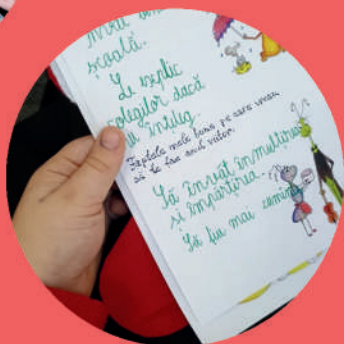 școală.
Le explic
colegilor dacă
nu înțeleg.
Faptele mele bune, pe care vreau
să le fac anul viitor:
Să învăț înmulțirea
și împărțirea.
Să fiu mai cuminte